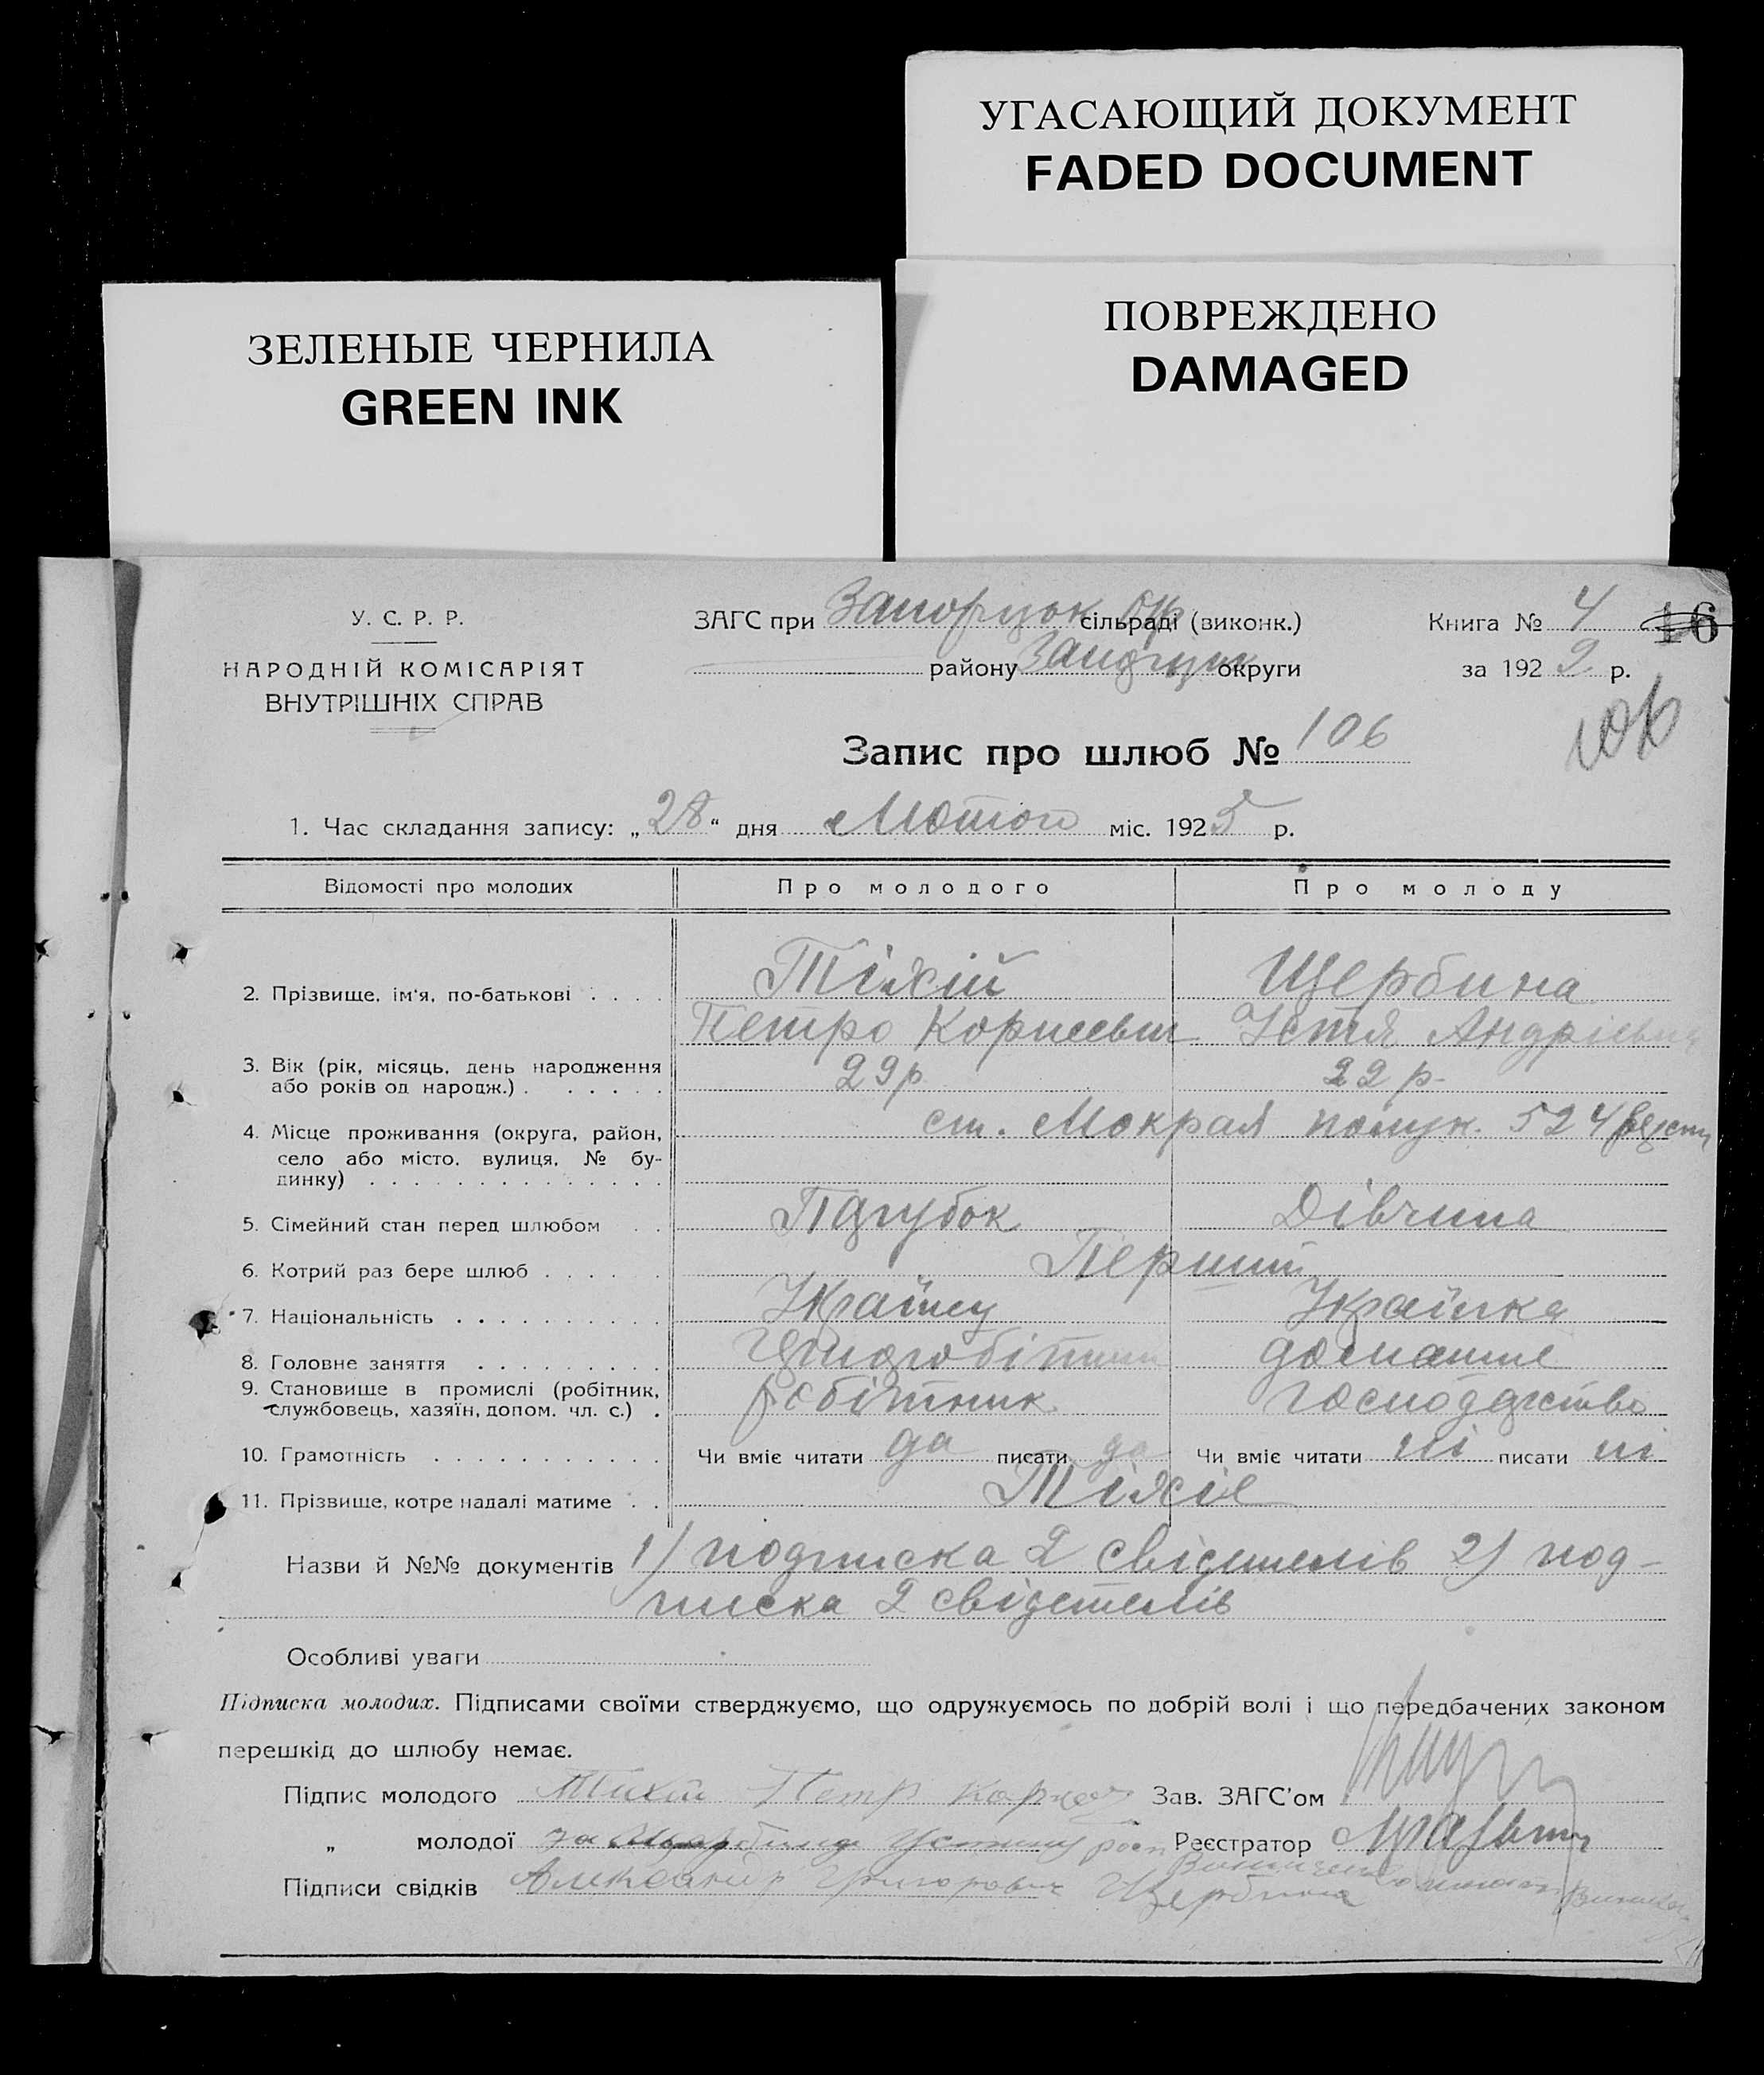 УГАСАЮЩИЙ ДОКУМЕНТ
FADED DOCUMENT
ПОВРЕЖДЕНО
DAMAGED
ЗЕЛЕНЫЕ ЧЕРНИЛА
GREEN INK
У. С. Р. Р.
НАРОДНІЙ КОМІСАРІЯТ
ВНУТРІШНІХ СПРАВ
ЗАГС при сільраді (виконк.)
району округи
Книга № 4
16
за 192 2 р.
106
Запис про шлюб № 106
1. Час складання запису: „28“ дня Лютого міс. 1925 р.
Відомості про молодих Про молодого Про молоду
2. Прізвище, ім'я, по-батькові . . . . Тіхій Щербина
Петро Корнеевич Устя
3. Вік (рік, місяць, день народження
або років од народж.) . . . . . . 29 р. 22 р.
4. Місце проживання (округа, район, ст. Мокрая 524
село або місто, вулиця, № бу-
динку) . . . . . . . . . . . . . .
5. Сімейний стан перед шлюбом . . Парубок Дівчина
6. Котрий раз бере шлюб . . . . . Перший
7. Національність . . . . . . . . . Українец Українка
8. Головне заняття . . . . . . . . . домашнє
9. Становище в промислі (робітник, робітник господарство
службовець, хазяїн, допом. чл. с.) .
10. Грамотність . . . . . . . . . . . Чи вміє читати да писати да Чи вміє читати ні писати ні
11. Прізвище, котре надалі матиме . . Тіхіе
Назви й №№ документів 1) подписка 2 свідетелів 2) под-
писка 2 свідетелів
Особливі уваги
Підписка молодих. Підписами своїми стверджуємо, що одружуємось по добрій волі і що передбачених законом
перешкід до шлюбу немає.
Підпис молодого Тихий Петр Зав. ЗАГС'ом
„ молодої за Устину Реєстратор
Підписи свідків Александр Григорович Щербина